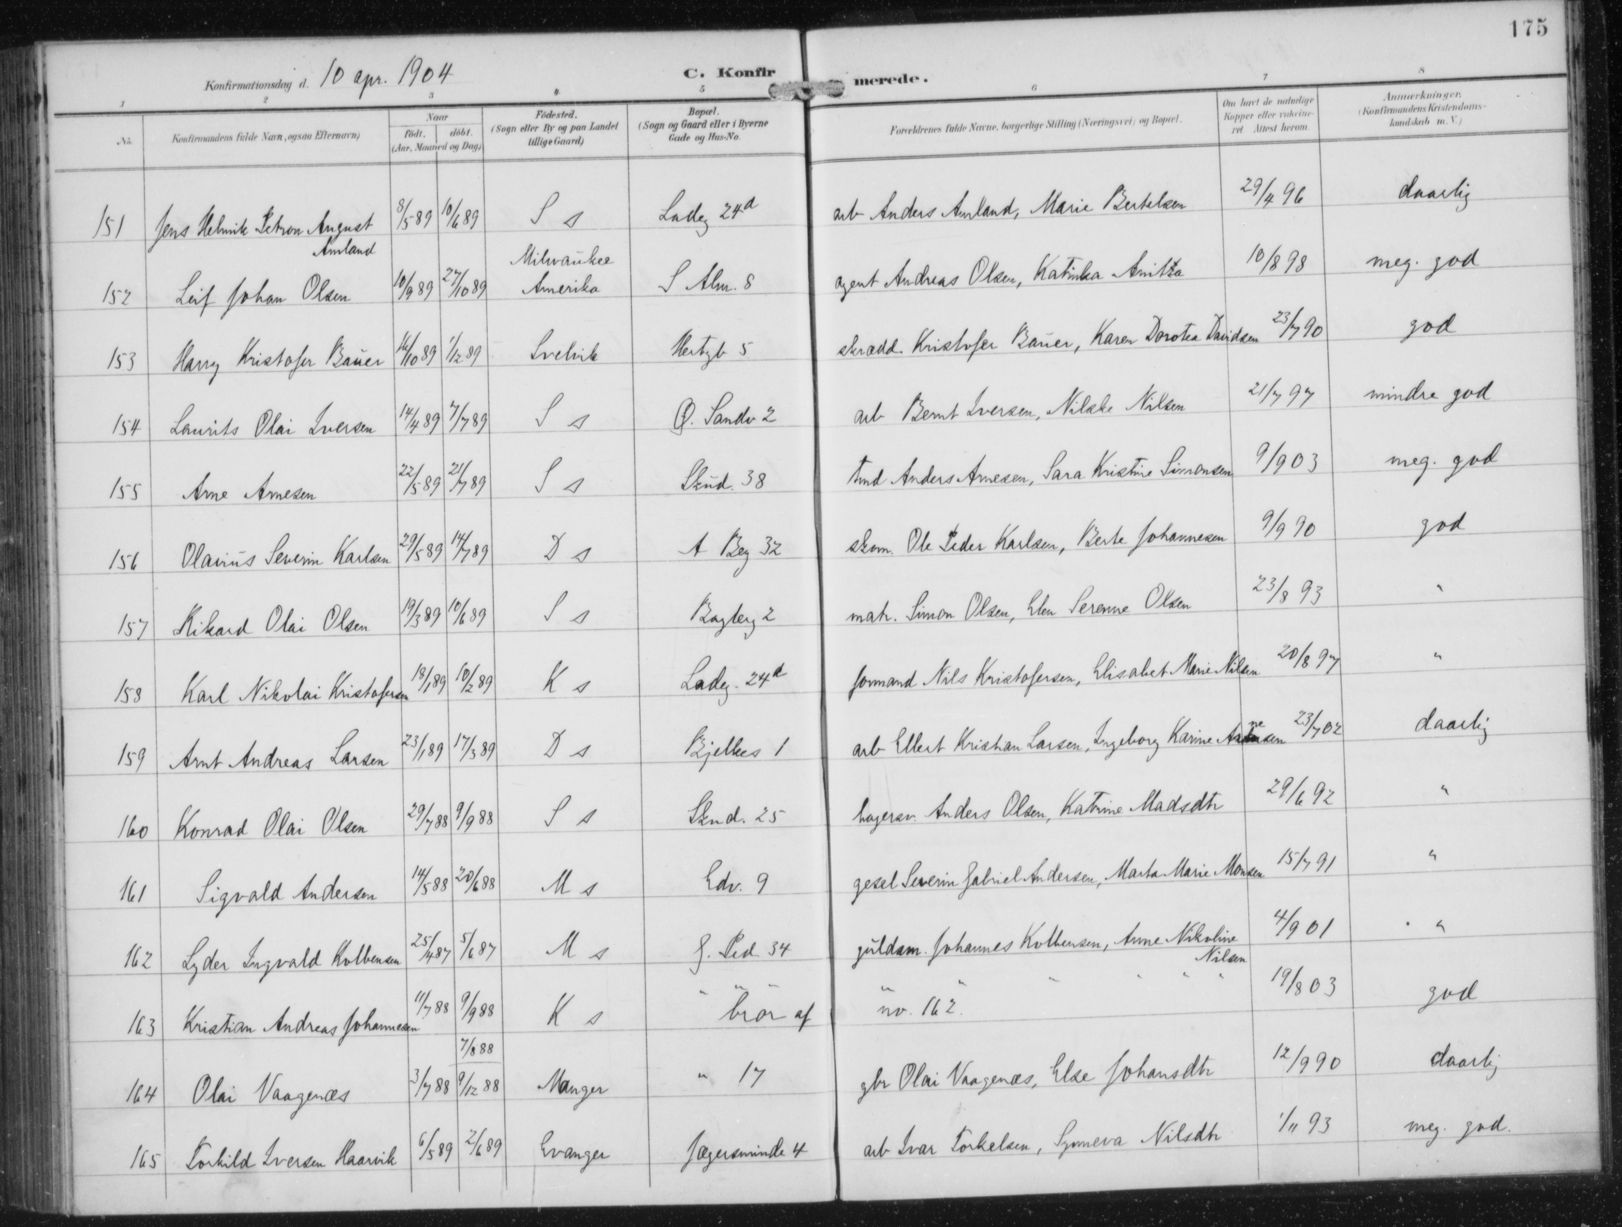 175
Konfirmationsdag d. 10 apr. 1904
C. Konfirmerede.
1 2 3 4 5 6 7 8
No. Konfirmandens fulde Navn, ogsaa Efternavn) Naar født. døbt. (Aar, Maaned og Dag) Fødested. (Sogn eller By og paa Landet tillige Gaard) Bopæl. (Sogn og Gaard eller i Byerne Gade og Hus-No. Forældrenes fulde Navne, borgerlige Stilling (Næringsvei) og Bopæl. Om havt de naturlige Kopper eller vakcineret. Attest herom. Anmærkninger. (Konfirmandens Kristendomskundskab m. V.)
151 Jens Helmik Petron August Amland 8/5 89 10/6 89 S s Ladeg 24a arb Anders Amland, Marie Bertelsen 29/4 96 daarlig
152 Leif Johan Olsen 10/9 89 27/10 89 Milwaukee Amerika S Alm. 8 agent Andreas Olsen, Katinka 10/8 98 meg. god
153 Harry Kristofer Bauer 14/10 89 1/12 89 Svelvik Hertzb 5 skrædd. Kristofer Bauer, Karen Dorotea Davidsen 23/7 90 god
154 Laurits Olai Iversen 14/4 89 7/7 89 S s Ø. Sandv 2 arb Bernt Iversen, Nilske Nilsen 21/7 97 mindre god
155 Arne Arnesen 22/5 89 21/7 89 S s Skud. 38 Anders Arnesen, Sara Kristine Simonsen 9/9 03 meg. god
156 Olavius Severin Karlsen 29/5 89 14/7 89 D s A Beg 32 skom. Ole Peder Karlsen, Berte Johannesen 9/9 90 god
157 Rikard Olai Olsen 19/3 89 10/6 89 S s 2 matr. Simon Olsen, Elen Serenne Olsen 23/8 93 "
158 Karl Nikolai Kristofersen 18/1 89 10/2 89 K s Ladeg. 24d formand Nils Kristofersen, Elisabet Marie Nilsen 20/8 97 "
159 Arnt Andreas Larsen 23/1 89 17/3 89 D s Bjelkes 1 arb Ellert Kristian Larsen, Ingeborg Karine 23/7 02 daarlig
160 Konrad Olai Olsen 29/7 88 9/9 88 S s Skud. 25 lagersv. Anders Olsen, Katrine Madsdtr 29/6 92 "
161 Sigvald Andersen 14/5 88 20/6 88 M s Edv. 9 gesel Severin Gabriel Andersen, Marta Marie Monsen 15/7 91 "
162 Lyder Ingvald Kolbensen 25/4 87 5/6 87 M s J. Ped. 34 guldsm. Johannes Kolbensen, Anne Nikoline Nilsen 4/9 01 "
163 Kristian Andreas Johannesen 11/7 88 9/9 88 K s " " " bror af no. 162. " " " " " 19/8 03 god
164 Olai Vaagenæs 3/7 88 7/8 88 9/12 88 Manger " 17 gbr Olai Vaagenæs, Else Johansdtr 12/9 90 daarlig
165 Torkild Iversen Haarvik 6/5 89 2/6 89 Evanger Jægersminde 4 arb Ivar Torkelsen, Synneva Nilsdtr 1/11 93 meg. god.